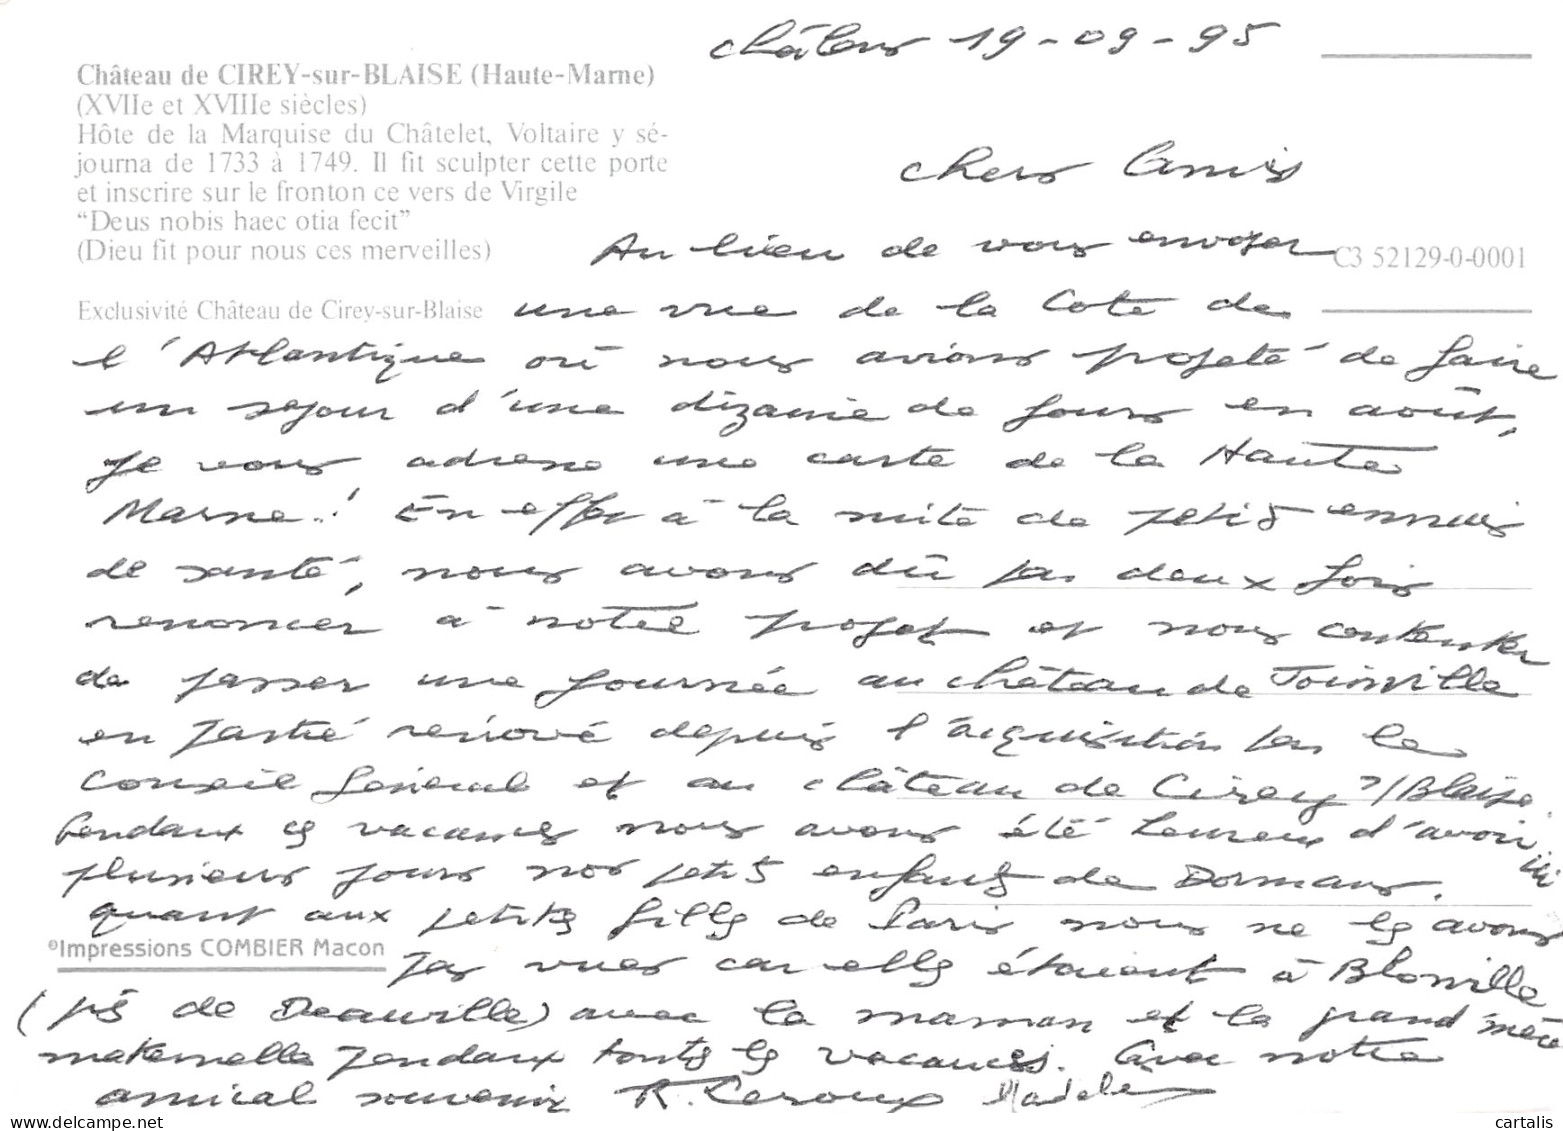 Châlons 19-09-95
Château de CIREY-sur-BLAISE (Haute-Marne)
(XVIIe et XVIIIe siècles)
Hôte de la Marquise du Châtelet, Voltaire y sé-
journa de 1733 à 1749. Il fit sculpter cette porte
et inscrire sur le fronton ce vers de Virgile
“Deus nobis haec otia fecit”
(Dieu fit pour nous ces merveilles)
Exclusivité Château de Cirey-sur-Blaise
C3 52129-0-0001
Chers Amis
Au lieu de vous envoyer
une vue de la Cote de
l'Atlantique où nous avions projeté de faire
un sejour d'une dizaine de jours en août,
je vous adresse une carte de la Haute
Marne..! En effet à la suite de petits ennuis
de santé, nous avons dû par deux fois
renoncer à notre projet et nous contenter
de passer une journée au château de Joinville
en partie rénové depuis l'acquisition par le
Conseil Général et au château de Cirey s/Blaise.
Pendant ces vacances nous avons été heureux d'avoir ici
plusieurs jours nos petits enfants de Dormans.
quant aux petites filles de Paris nous ne les avons
pas vues car elles étaient à Blonville
(près de Deauville) avec la maman et la grand'mère
maternelle pendant toutes les vacances. Avec notre
amical souvenir R. Leroux Madele
©Impressions COMBIER Macon
delcampe.net
cartalis